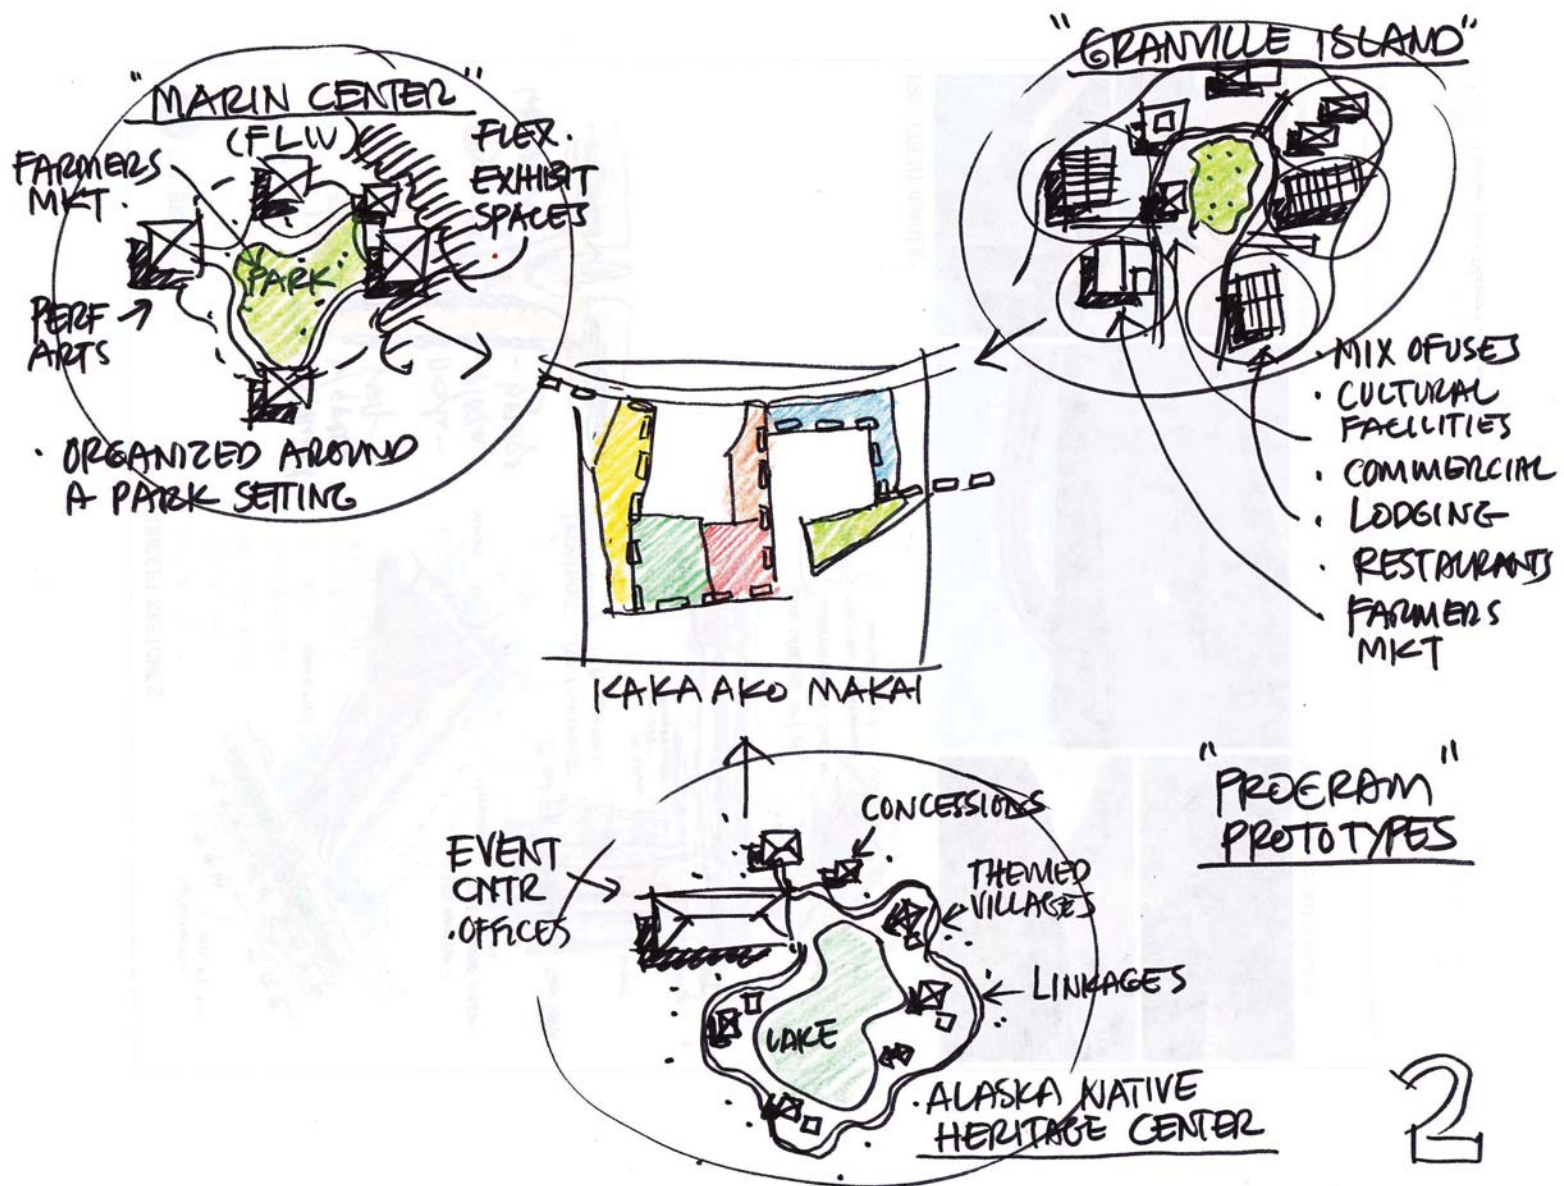 "MARIN CENTER"
(FLW)
FARMERS
MKT.
FLEX.
EXHIBIT
SPACES
PARK
PERF
ARTS
· ORGANIZED AROUND
A PARK SETTING
"GRANVILLE ISLAND"
· MIX OF USES
· CULTURAL
FACILITIES
· COMMERCIAL
· LODGING
· RESTAURANTS
· FARMERS
MKT
KAKAAKO MAKAI
"PROGRAM"
PROTOTYPES
EVENT
CNTR
· OFFICES
CONCESSIONS
THEMED
VILLAGES
LINKAGES
LAKE
· ALASKA NATIVE
HERITAGE CENTER
2